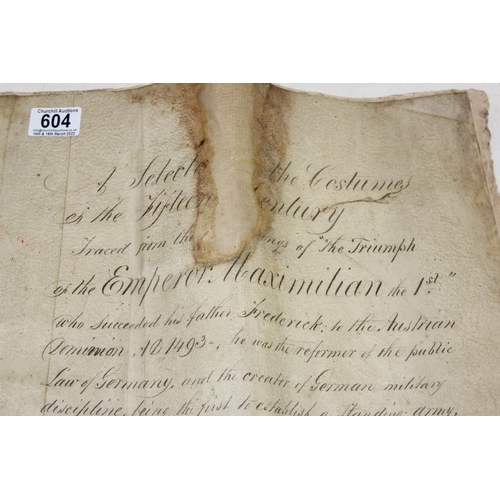 Churchill Auctions
604
A Selecti the Costumes
in the Fifteen Century
Traced from the ings of "the Triumph
of the Emperor Maximilian the 1st."
who Succeeded his father, Frederick, to the Austrian
Dominion AD 1493-, he was the reformer of the public
Law of Germany, and the creator of German military
discipline, being the first to establish a standing army,